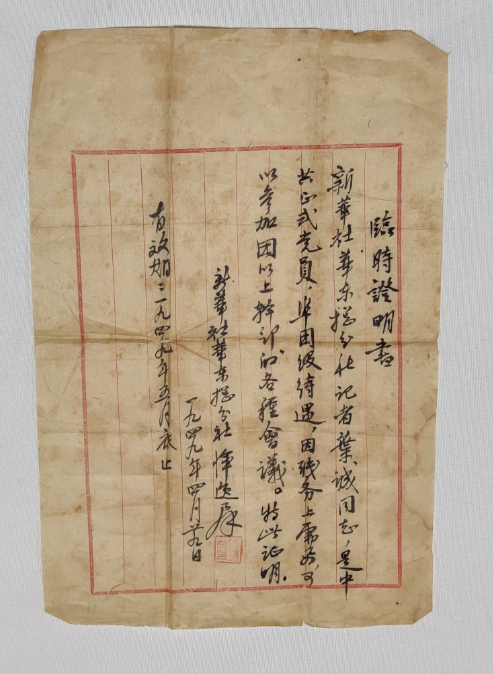 臨時證明書
新華社華东總分社记者葉诚同志，是中
共正式党員，准团级待遇，因职务上需要，可
以参加团以上幹部的各種會議。特此证明。
新華社華东總分社 惲逸群
一九四九年四月廿九日
有效期：一九四九年五月底止